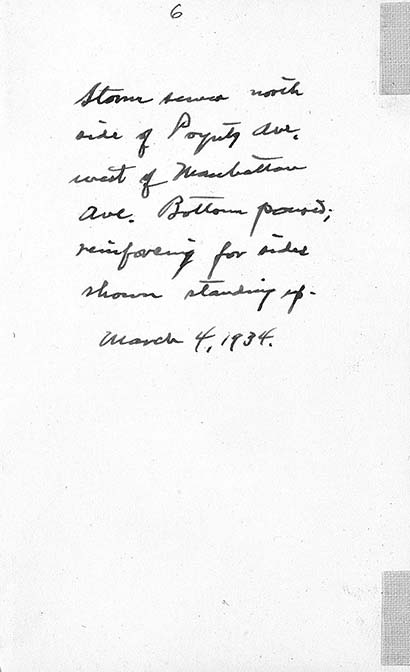 6
Storm sewer north
side of Poyntz Ave.
west of Manhattan
Ave. Bottom poured;
reinforcing for sides
shown standing up.
March 4, 1934.